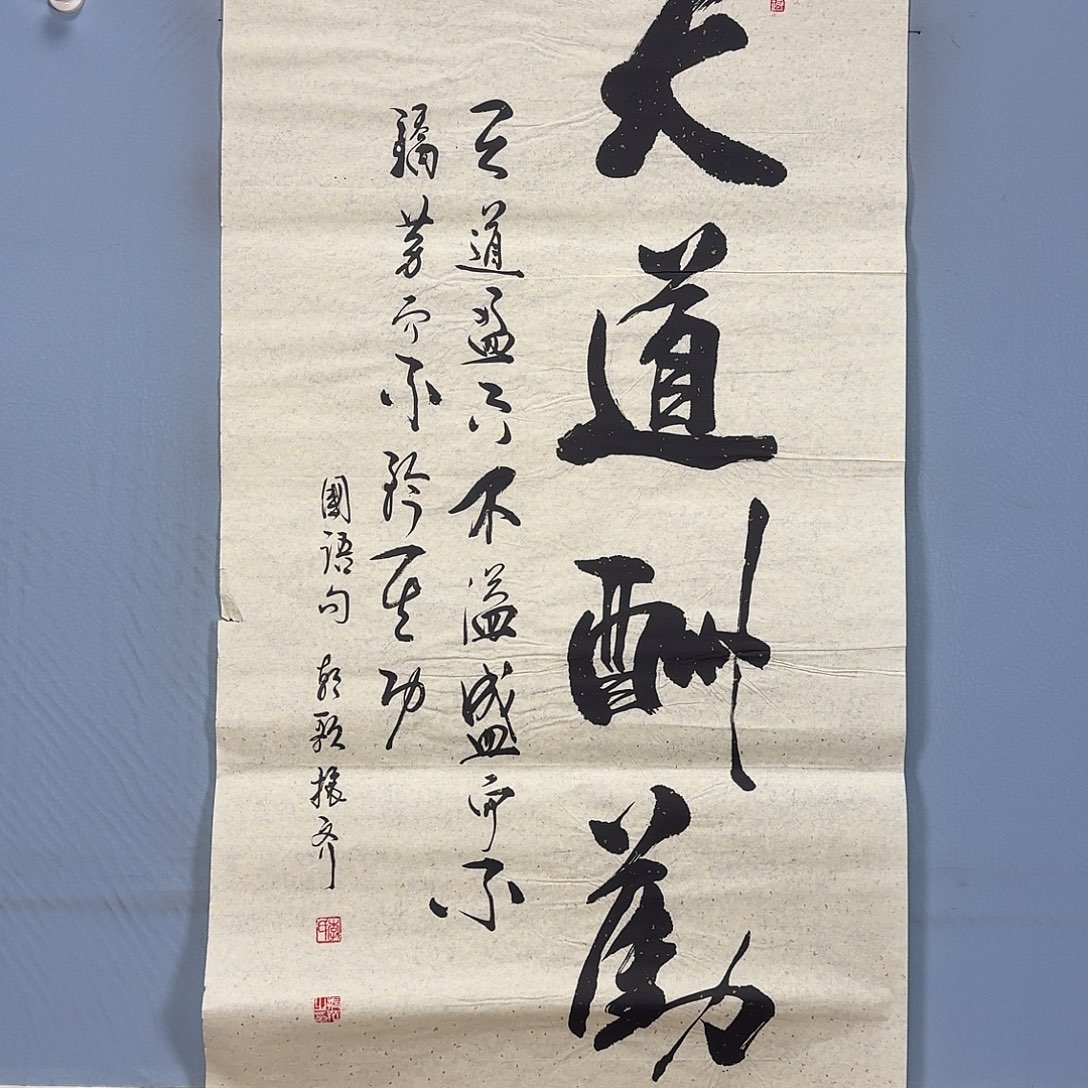 天道酬勤
天道盈而不溢盛而不
驕勞而不矜其功
國語句 朝歌振齐